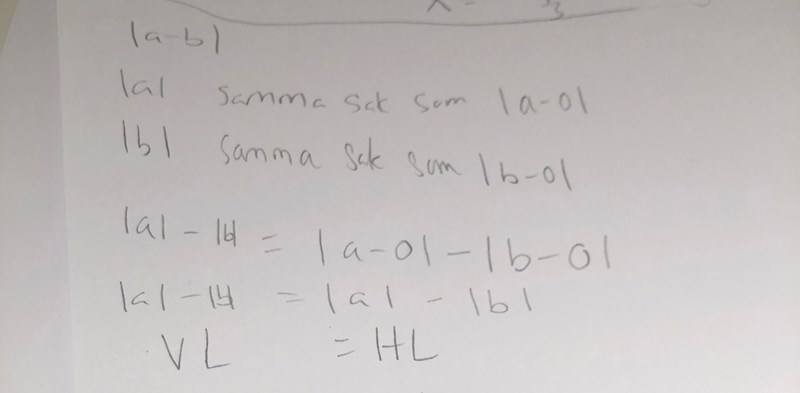 |a-b|
|a| samma sak som |a-0|
|b| samma sak som |b-0|
|a| - |b| = |a-0| - |b-0|
|a| - |b| = |a| - |b|
VL = HL